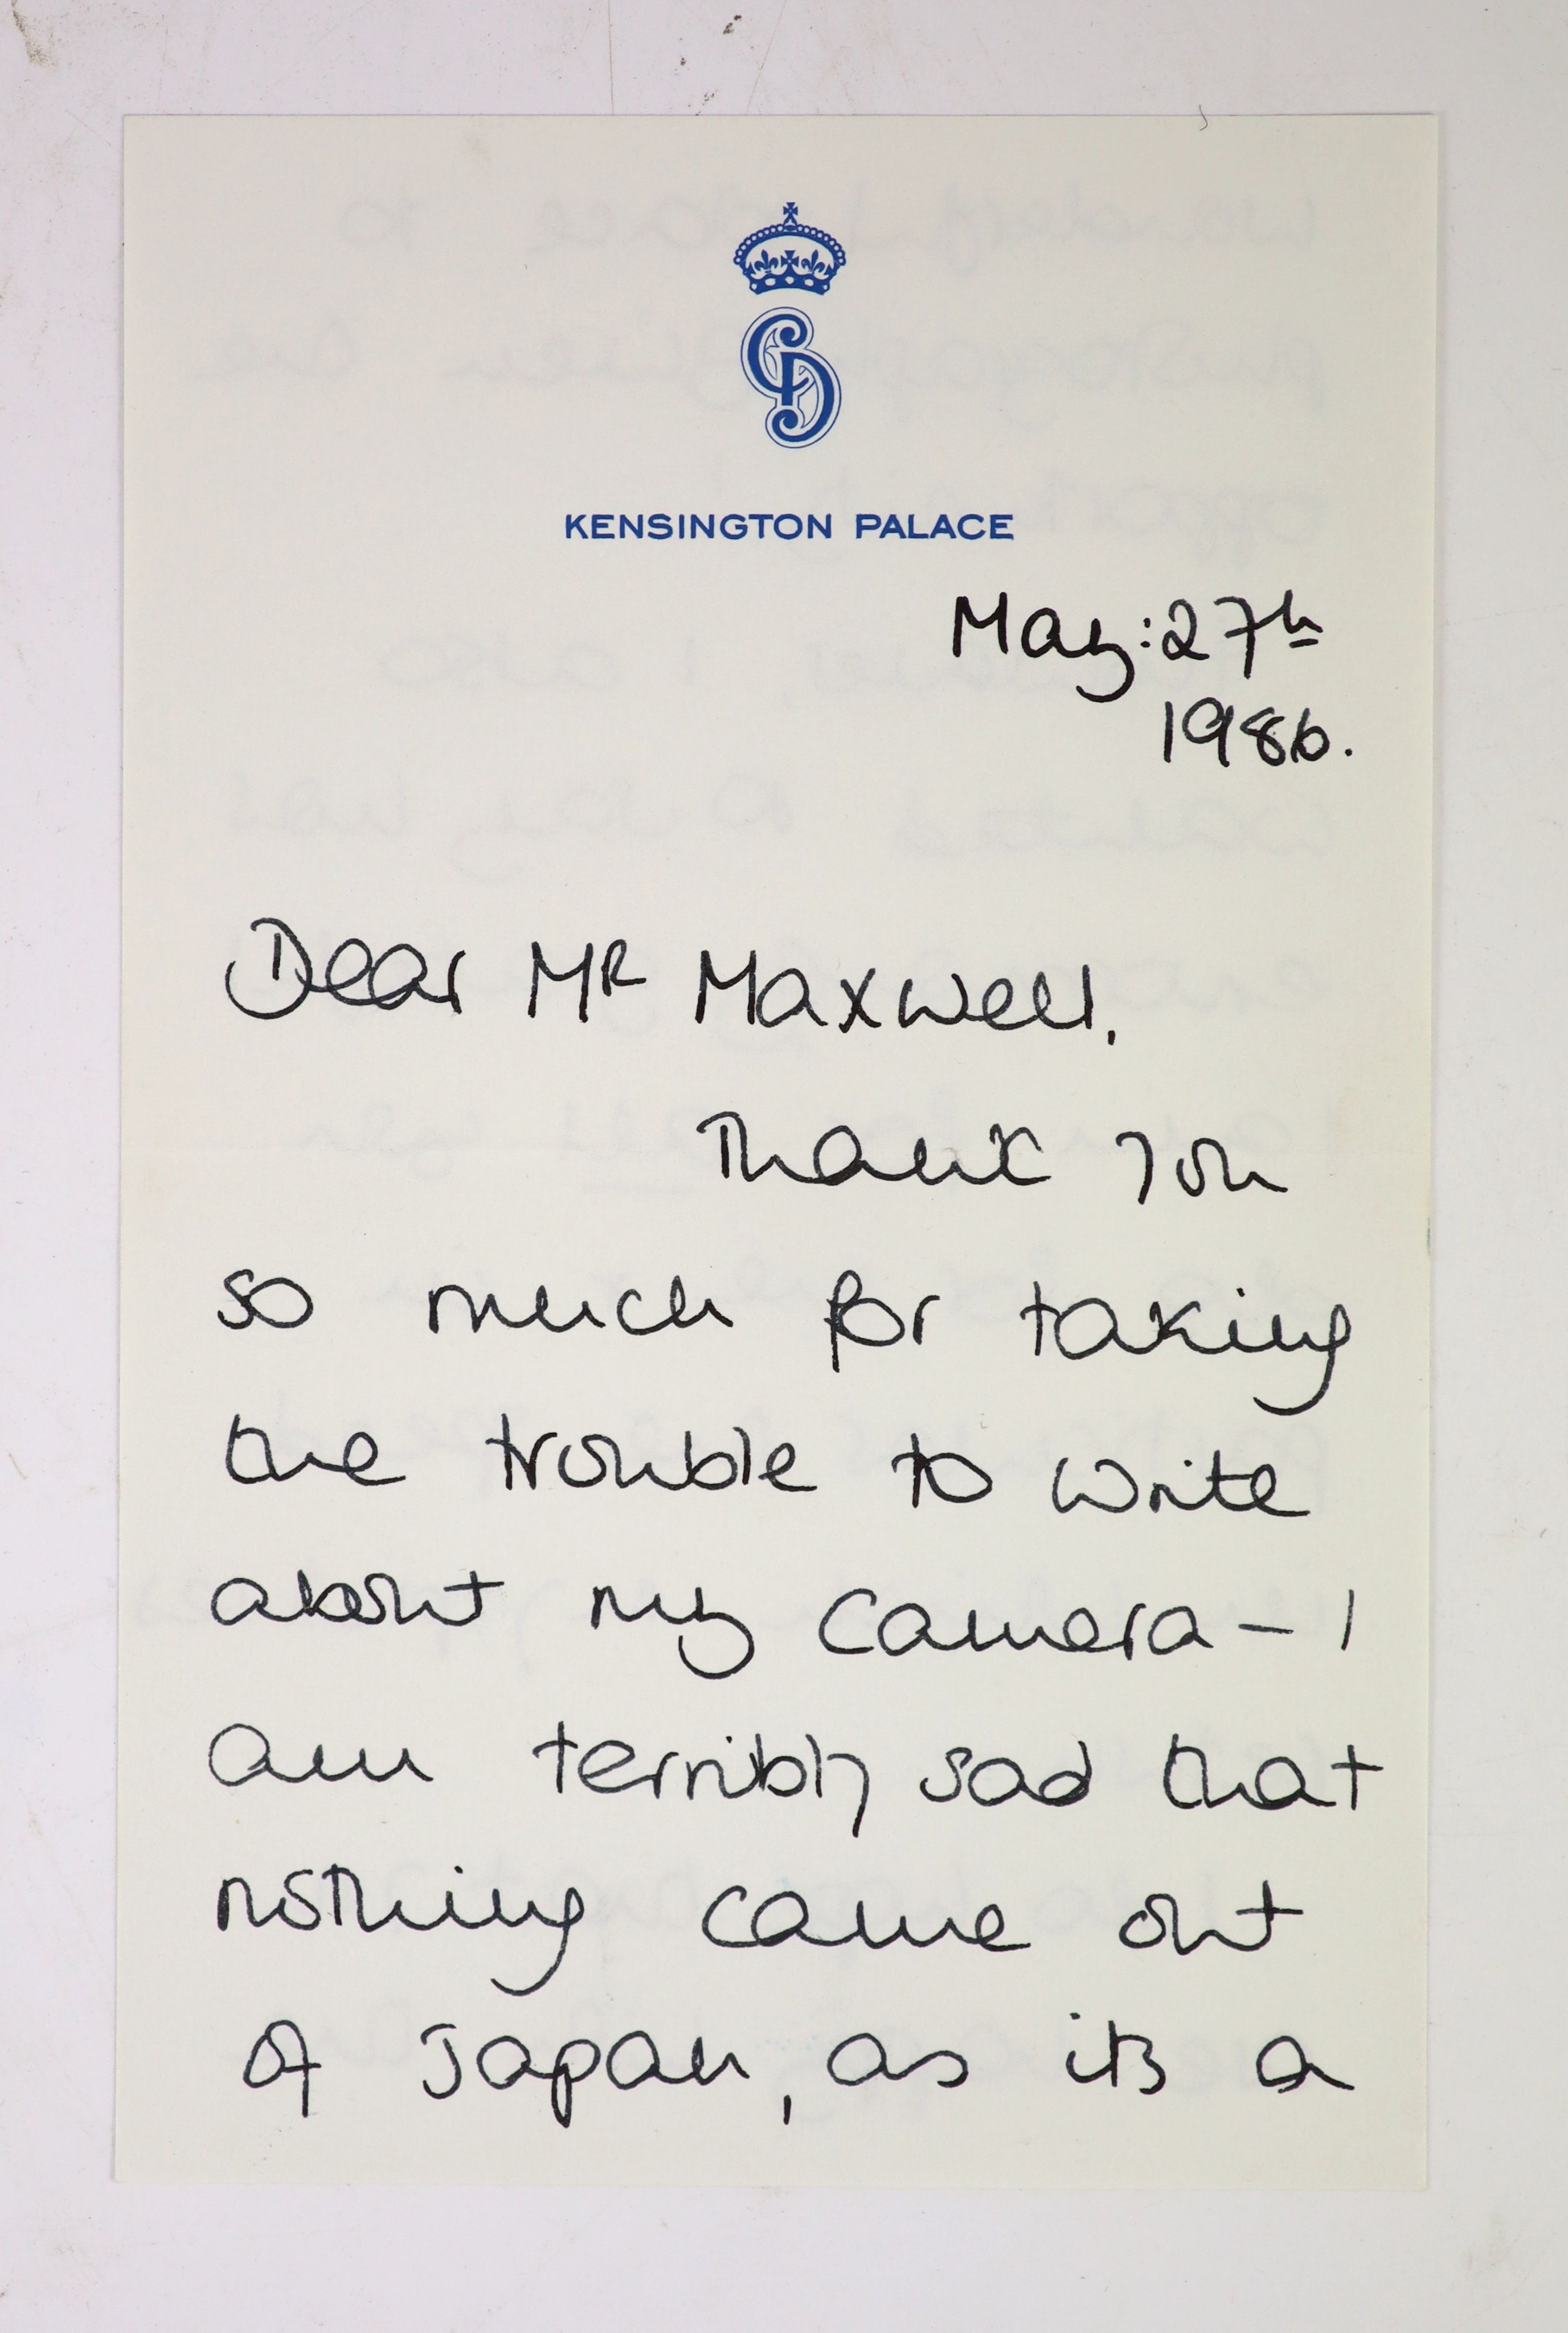 CD
KENSINGTON PALACE
May: 27th
1986.
Dear Mr Maxwell,
Thank you
so much for taking
the trouble to write
about my camera – I
am terribly sad that
nothing came out
of Japan, as its a